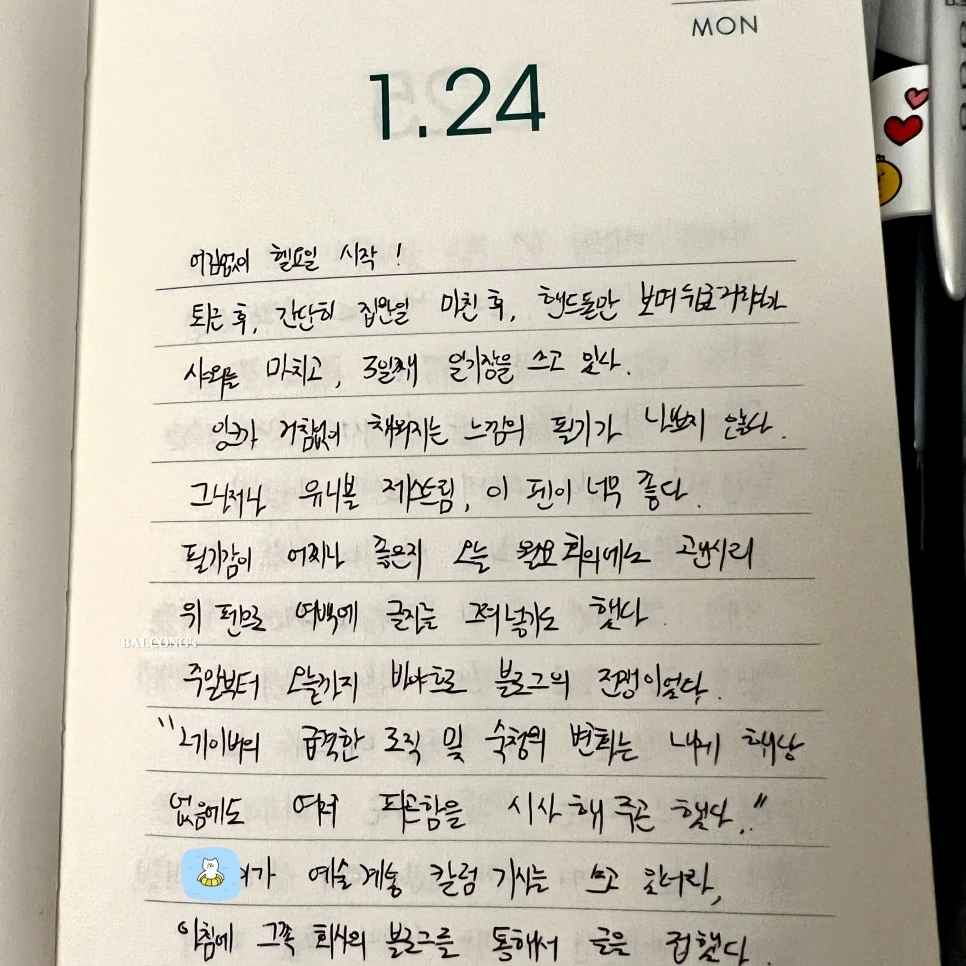 MON
1.24
어김없이 헬요일 시작!
퇴근 후, 간단히 집안일 마친 후, 핸드폰만 보며 뒤로거리다가
샤워를 마치고, 3일째 일기장을 쓰고 있다.
잉크가 거침없이 채워지는 느낌의 필기가 나쁘지 않다.
그나저나 유니볼 제트스트림, 이 펜이 너무 좋다.
필기감이 어찌나 좋은지 오늘 월요회의에도 고반시리
위 펜으로 여백에 글자를 그려넣기도 했다.
BALCONG'S
주말부터 오늘까지 바야흐로 블로그의 전쟁이었다.
"네이버의 급격한 로직 및 숙청의 변화는 내게 해당
없음에도 여러 피곤함을 시사해 주곤 했다."
가 예술계통 칼럼 기사를 쓰고 있더라,
아침에 그쪽 회사의 블로그를 통해서 글을 접했다.